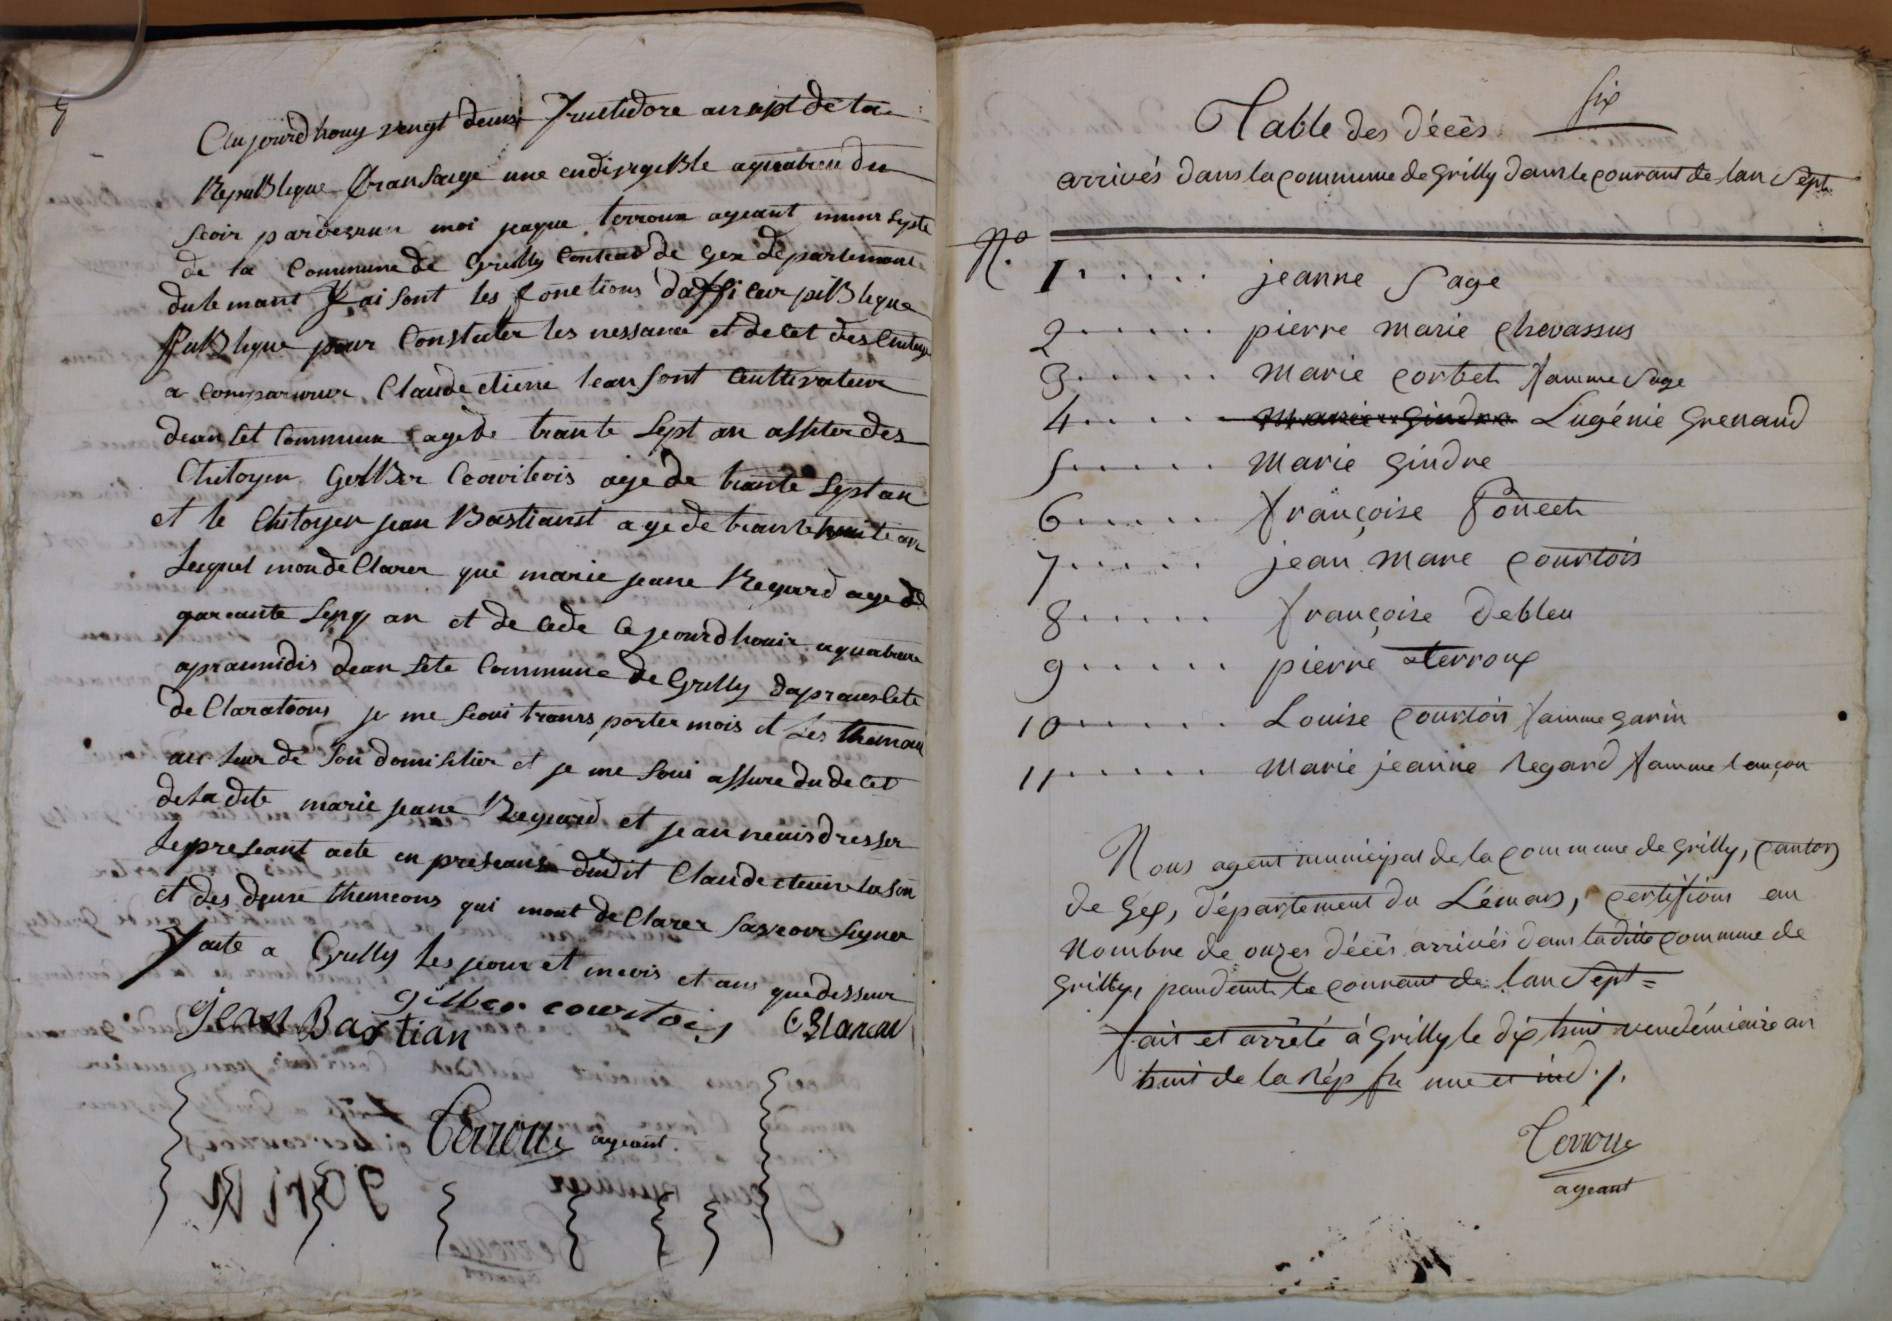 Aujourdhouy vengt deuxe fructidore an sept de la
Republeque fransaige une endivigeble a quatreu du
seoir pardevan moi jaque terroux ageant munisypte
de la Commune de Grilly Conton de Gex departement
du lemant faisont les fonctions dofficier piblique
Publique pour Constater les nessance et decet des Citoye
a comparueur Claude etiene leanSont Cultivateur
dean set Commune age de trante sept an assiter des
Chitoyen Gilber Courtois age de trante Sept an
et le Chitoyen jean Bastianst age de trante huite an
lesquel mon deClarer que marie jeane Regard age de
quarante senq an et de cede ce jeourdhouir a quatreu
apraumidis dean sete Commune de Grilly daprausete
deClarations je me seoui trans porter mois et les themoin
au leur de son domisilier et je me soui assure du decet
de la dite marie jeane Regard et jean neuis dresser
le preseant acte en preseanse dudit Claude etiene lanson
et des deuxe themeons qui mont deClarer saveoir signer
faite a Grilly les jeour et meois et ans quedesseur
gilber courtois
jean Bastian C E lancon
Terroux ageant.
Six
Table des décès
arrivés dans la commune de Grilly dans le courant de lan sept
N.º
1 ...... jeanne Sage
2 ...... pierre marie chevassus
3 ...... marie corbet famme Sage
4 ...... marie gindre Eugénie Grenaud
5 ...... marie gindre
6 ...... françoise Poncet
7 ...... jean marc courtois
8 ...... françoise Debleu
9 ...... pierre terroux
10 ...... Louise courtois famme garin
11 ...... marie jeanne Regard famme lançon
Nous agent municipal de la commune de Grilly, canton
de Gex, département du Léman, certifions au
nombre de onzes décès arrivés dans la ditte commune de
Grilly, pandant le courant de lan sept=
fait et arrêté à Grilly le dix huit vendémiaire an
huit de la rép fr une et ind ./.
Terroux
ageant